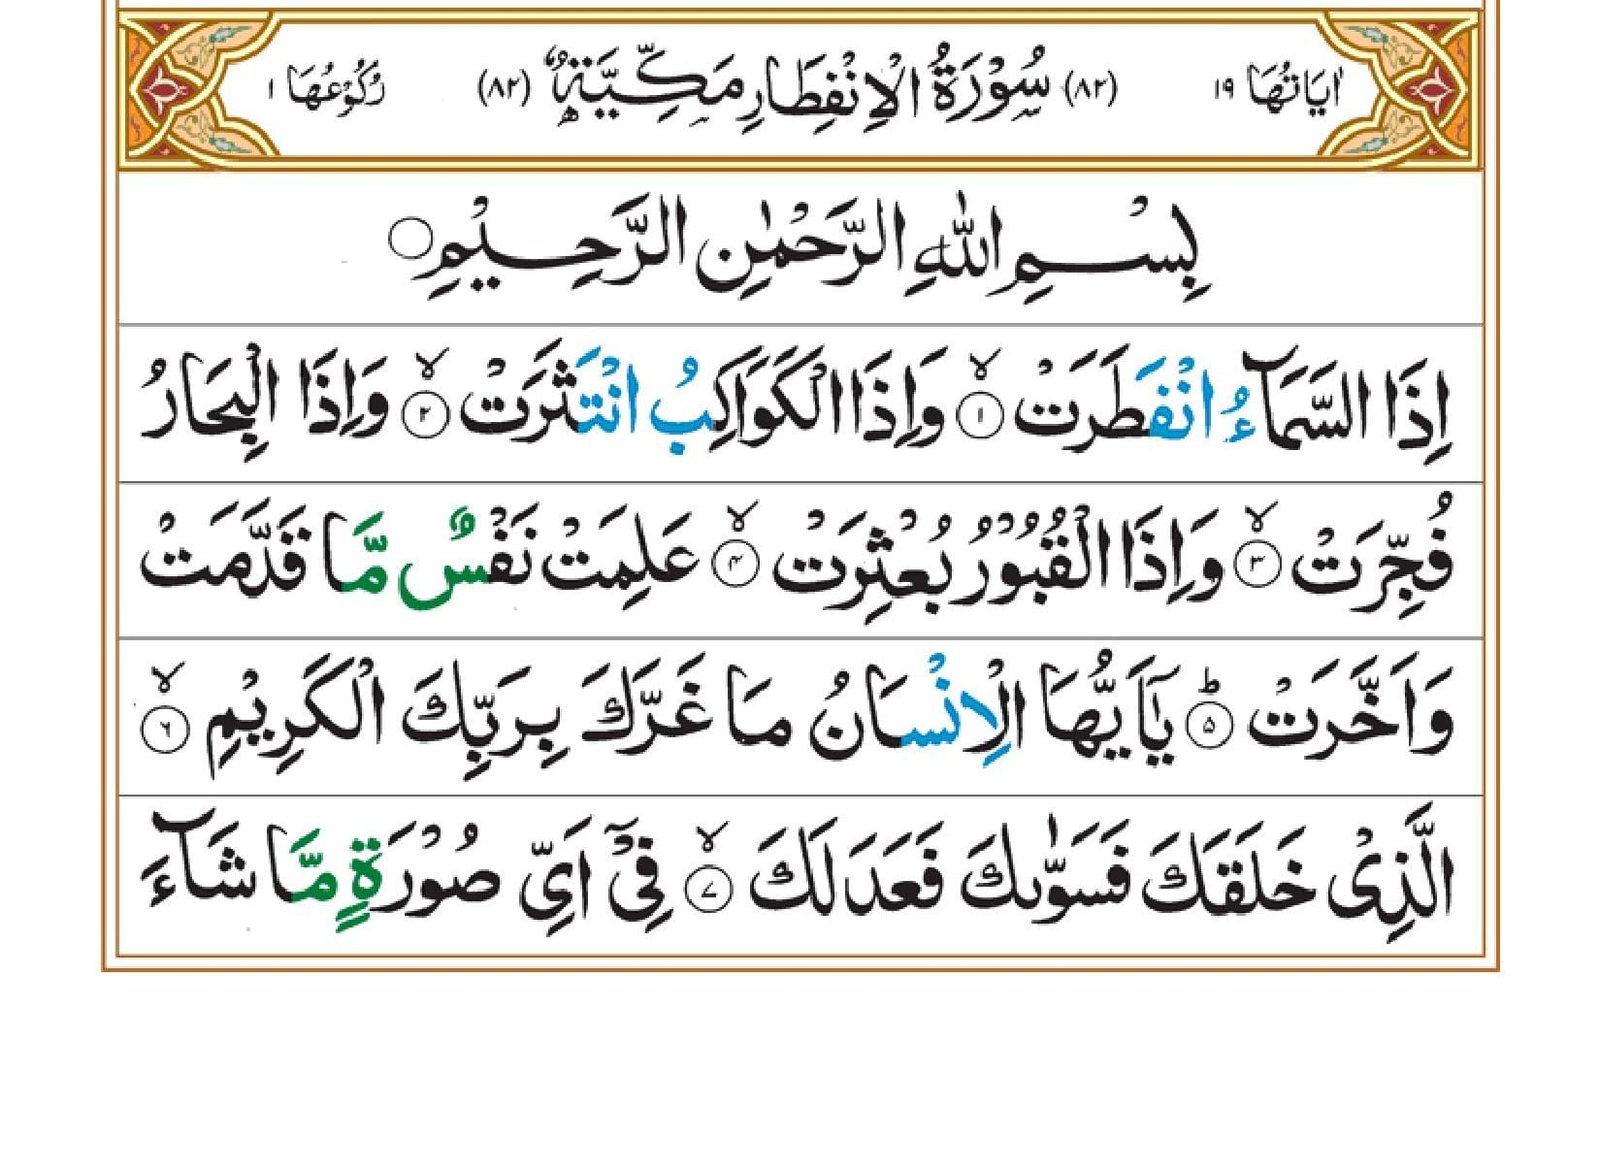 اٰيَاتُهَا ١٩ (٨٢) سُوْرَةُ الْاِنْفِطَارِ مَكِّيَّةٌ (٨٢) رُكُوْعُهَا ١
بِسْمِ اللّٰهِ الرَّحْمٰنِ الرَّحِيْمِ ۝
اِذَا السَّمَآءُ انْفَطَرَتْ ۙ‏﴿۱﴾ وَاِذَا الْكَوَاكِبُ انْتَثَرَتْ ۙ‏﴿۲﴾ وَاِذَا الْبِحَارُ
فُجِّرَتْ ۙ‏﴿۳﴾ وَاِذَا الْقُبُوْرُ بُعْثِرَتْ ۙ‏﴿۴﴾ عَلِمَتْ نَفْسٌ مَّا قَدَّمَتْ
وَاَخَّرَتْ ؕ‏﴿۵﴾ يٰۤاَيُّهَا الْاِنْسَانُ مَا غَرَّكَ بِرَبِّكَ الْكَرِيْمِ ۙ‏﴿۶﴾
الَّذِىْ خَلَقَكَ فَسَوّٰٮكَ فَعَدَلَكَ ۙ‏﴿۷﴾ فِىْۤ اَىِّ صُوْرَةٍ مَّا شَآءَ